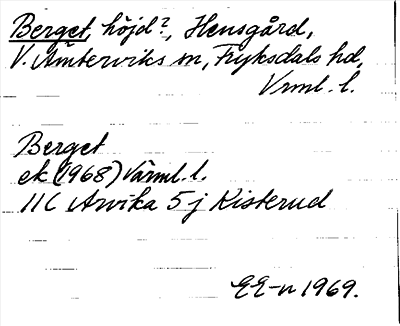 Berget, höjd?, Hensgård,
V. Ämterviks sn, Fryksdals hd,
Vrml. l.
Berget
ek (1968) Värml. l.
11C Arvika 5j Kisterud
EE-n 1969.